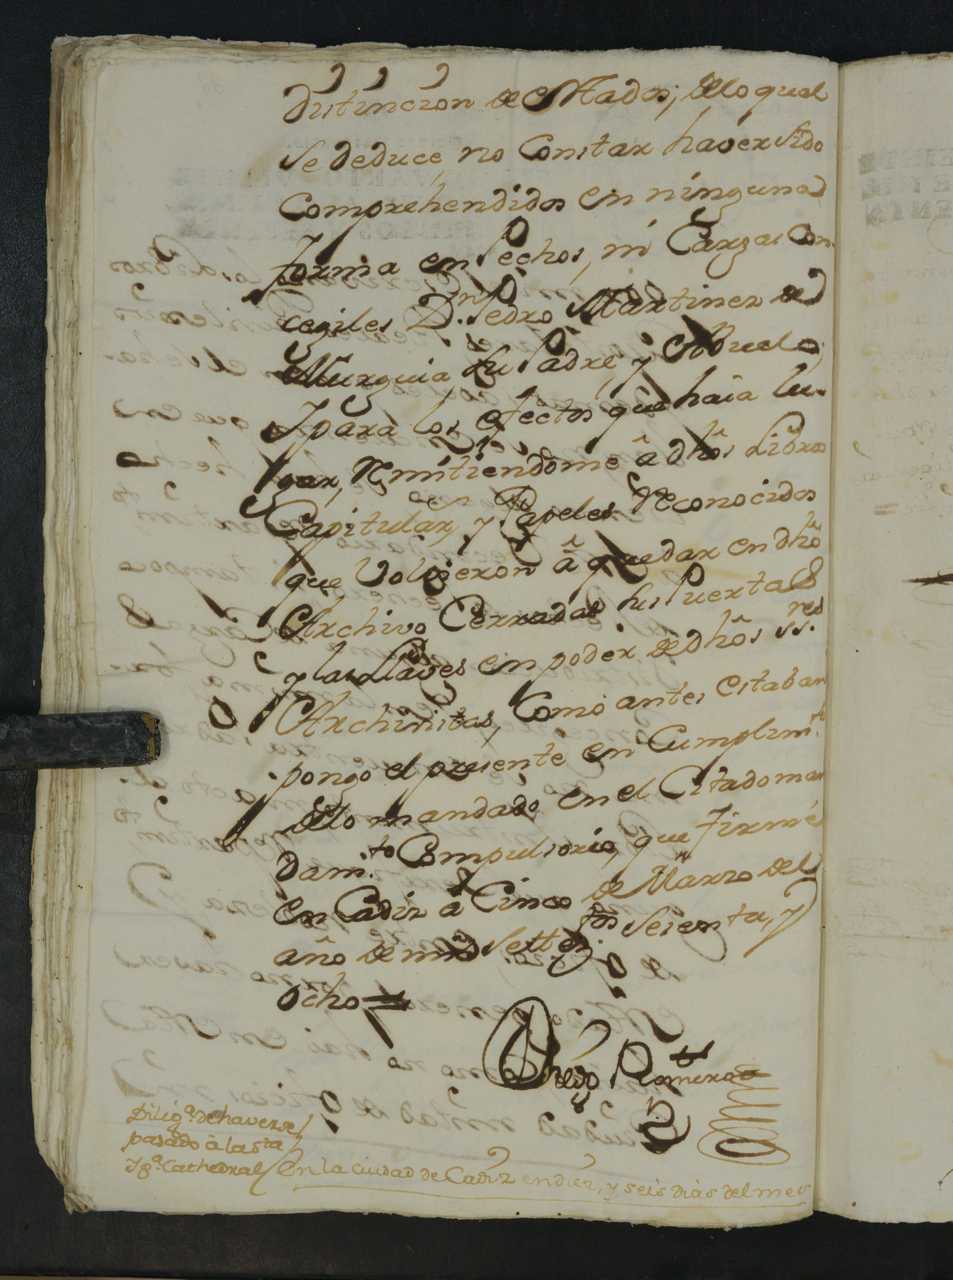 distincion de estados; delo qual
se deduce, no Constar haver sido
Comprehendidos en ninguna
forma en Pechos, ni Cargas Con-
cegiles Dn. Pedro Martinez de
Murguia su Padre, y Abuelo
Ypara los efectos que haia lu-
gar, Remitiendome â dhôs Libros
Capitulars y Papeles Reconocidos
que volvieron â quedar en dhô
Archivo Cerradas sus Puertas
y las Llaves en poder de dhôs ss.res
Archivistas, Como antes estaban
pongo el presente en Cumplim.to
delo mandado en el Citado man
dam.to Compulsorio, que firmé
en Cadiz â Cinco de Marzo del
año de mil Settez.tos sesenta, y
ocho=
Romero
Dilig.a de haverse
pasado â la s.ta
Ygª. Cathedral
En la ciudad de Cadiz en diez, y seis dias del mes